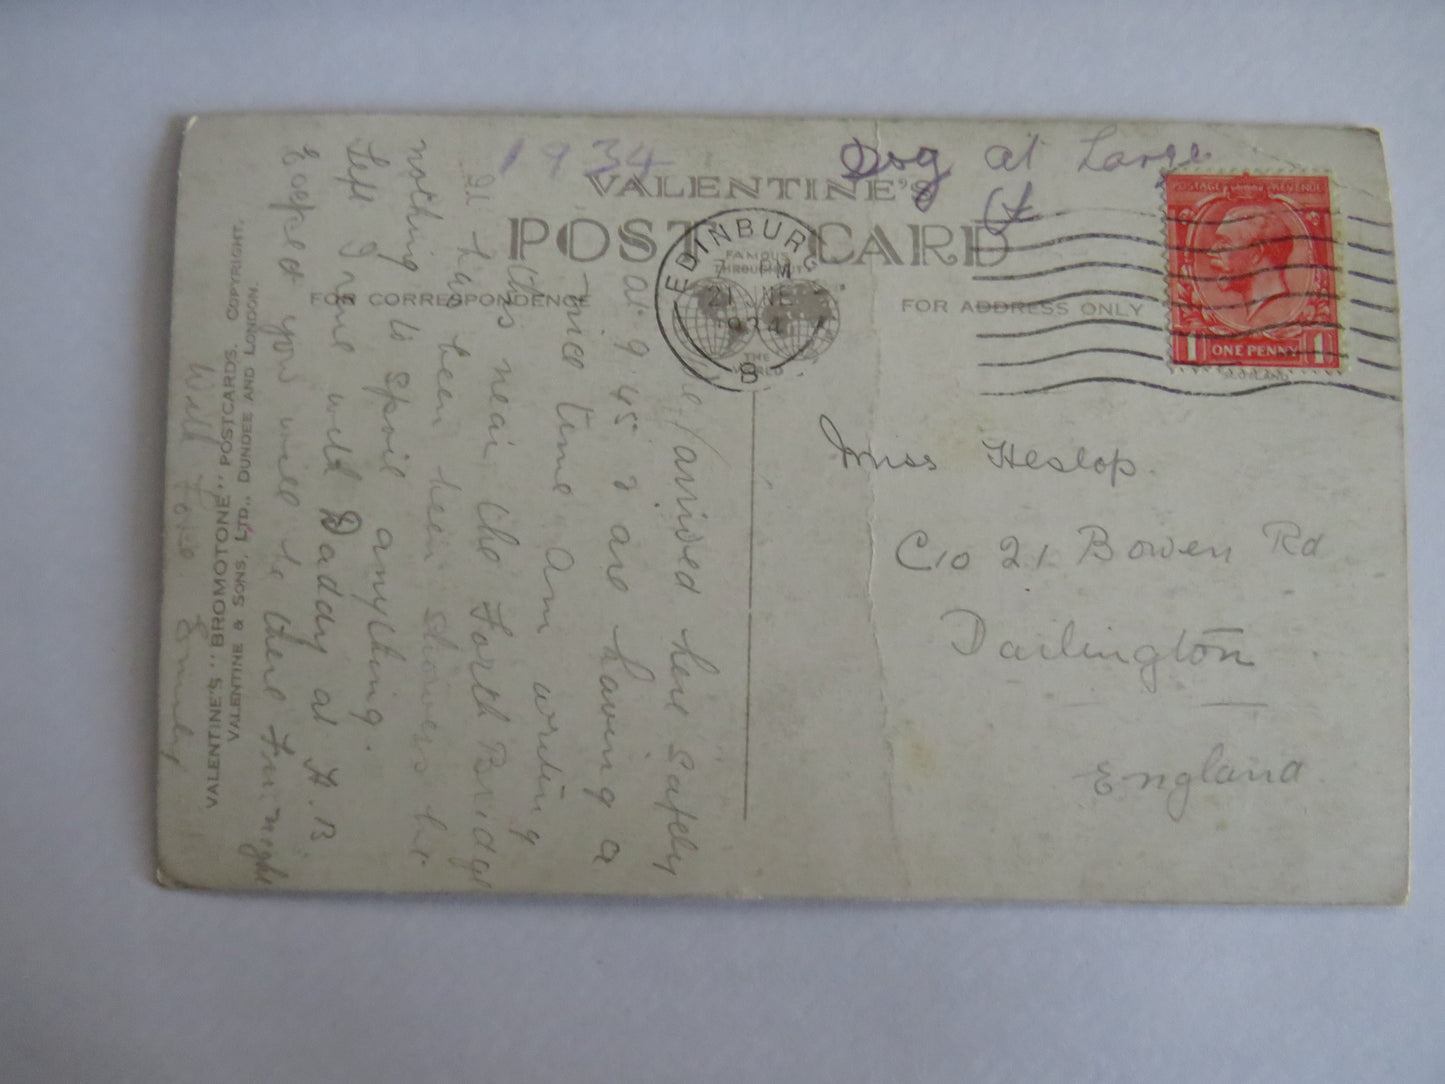 1934
Dog at Large
VALENTINE'S
POST CARD
FOR CORRESPONDENCE
FAMOUS
THROUGHOUT
THE
WORLD
FOR ADDRESS ONLY
EDINBURG
7 PM
21 JNE
1934
8
POSTAGE REVENUE
1 ONE PENNY 1
Miss Heslop.
C/o 21 Bowen Rd
Darlington
England.
arrived here safely
at 9 45 & are having a
nice time am writing
this near the Forth Bridge
It has been showers but
nothing to spoil anything.
Left Irene with Daddy at H.B
Expect you will be there
With love Emily
VALENTINE'S "BROMOTONE" POSTCARDS. COPYRIGHT.
VALENTINE & SONS, LTD., DUNDEE AND LONDON.